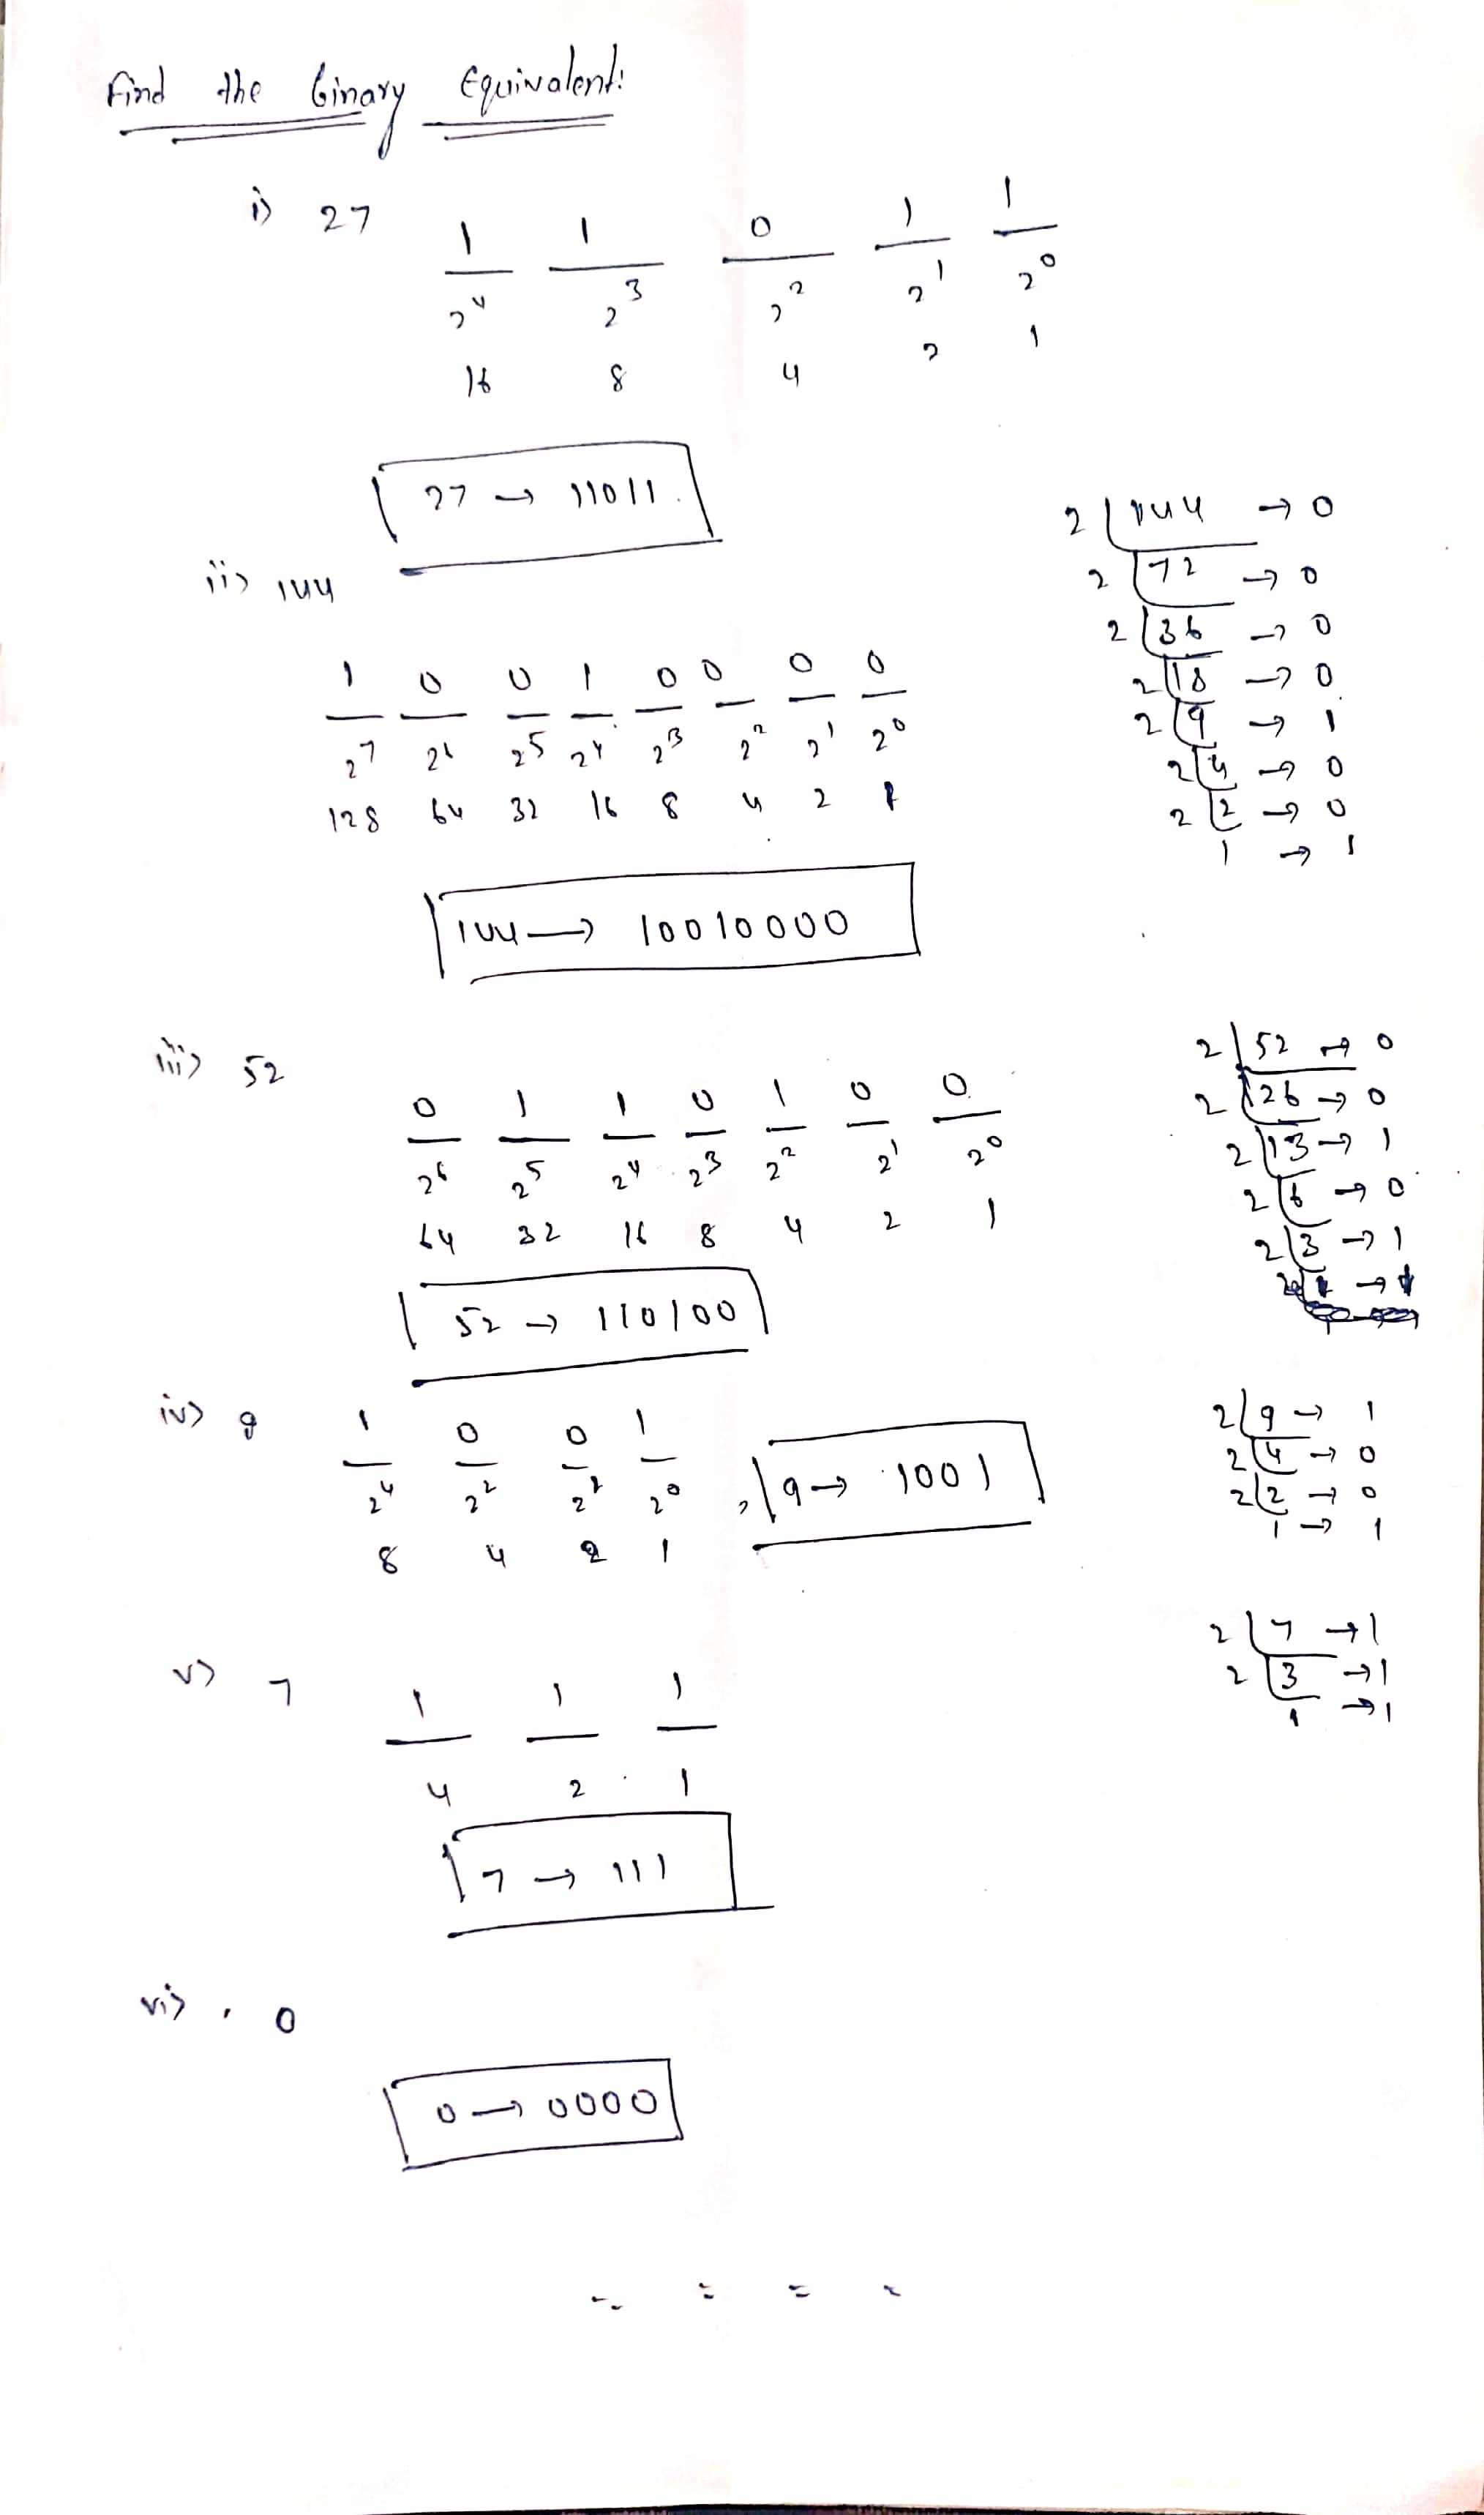 Find the binary Equivalent:
i) 27
1 1 0 1 1
2^4 2^3 2^2 2^1 2^0
16 8 4 2 1
27 → 11011
ii) 144
1 0 0 1 0 0 0 0
2^7 2^6 2^5 2^4 2^3 2^2 2^1 2^0
128 64 32 16 8 4 2 1
144 → 10010000
2 144 → 0
2 72 → 0
2 36 → 0
2 18 → 0
2 9 → 1
2 4 → 0
2 2 → 0
1 → 1
iii) 52
0 1 1 0 1 0 0
2^6 2^5 2^4 2^3 2^2 2^1 2^0
64 32 16 8 4 2 1
52 → 110100
2 52 → 0
2 26 → 0
2 13 → 1
2 6 → 0
2 3 → 1
1 → 1
iv) 9
1 0 0 1
2^4 2^2 2^1 2^0
8 4 2 1
9 → 1001
2 9 → 1
2 4 → 0
2 2 → 0
1 → 1
v) 7
1 1 1
4 2 1
7 → 111
2 7 → 1
2 3 → 1
1 → 1
vi) 0
0 → 0000